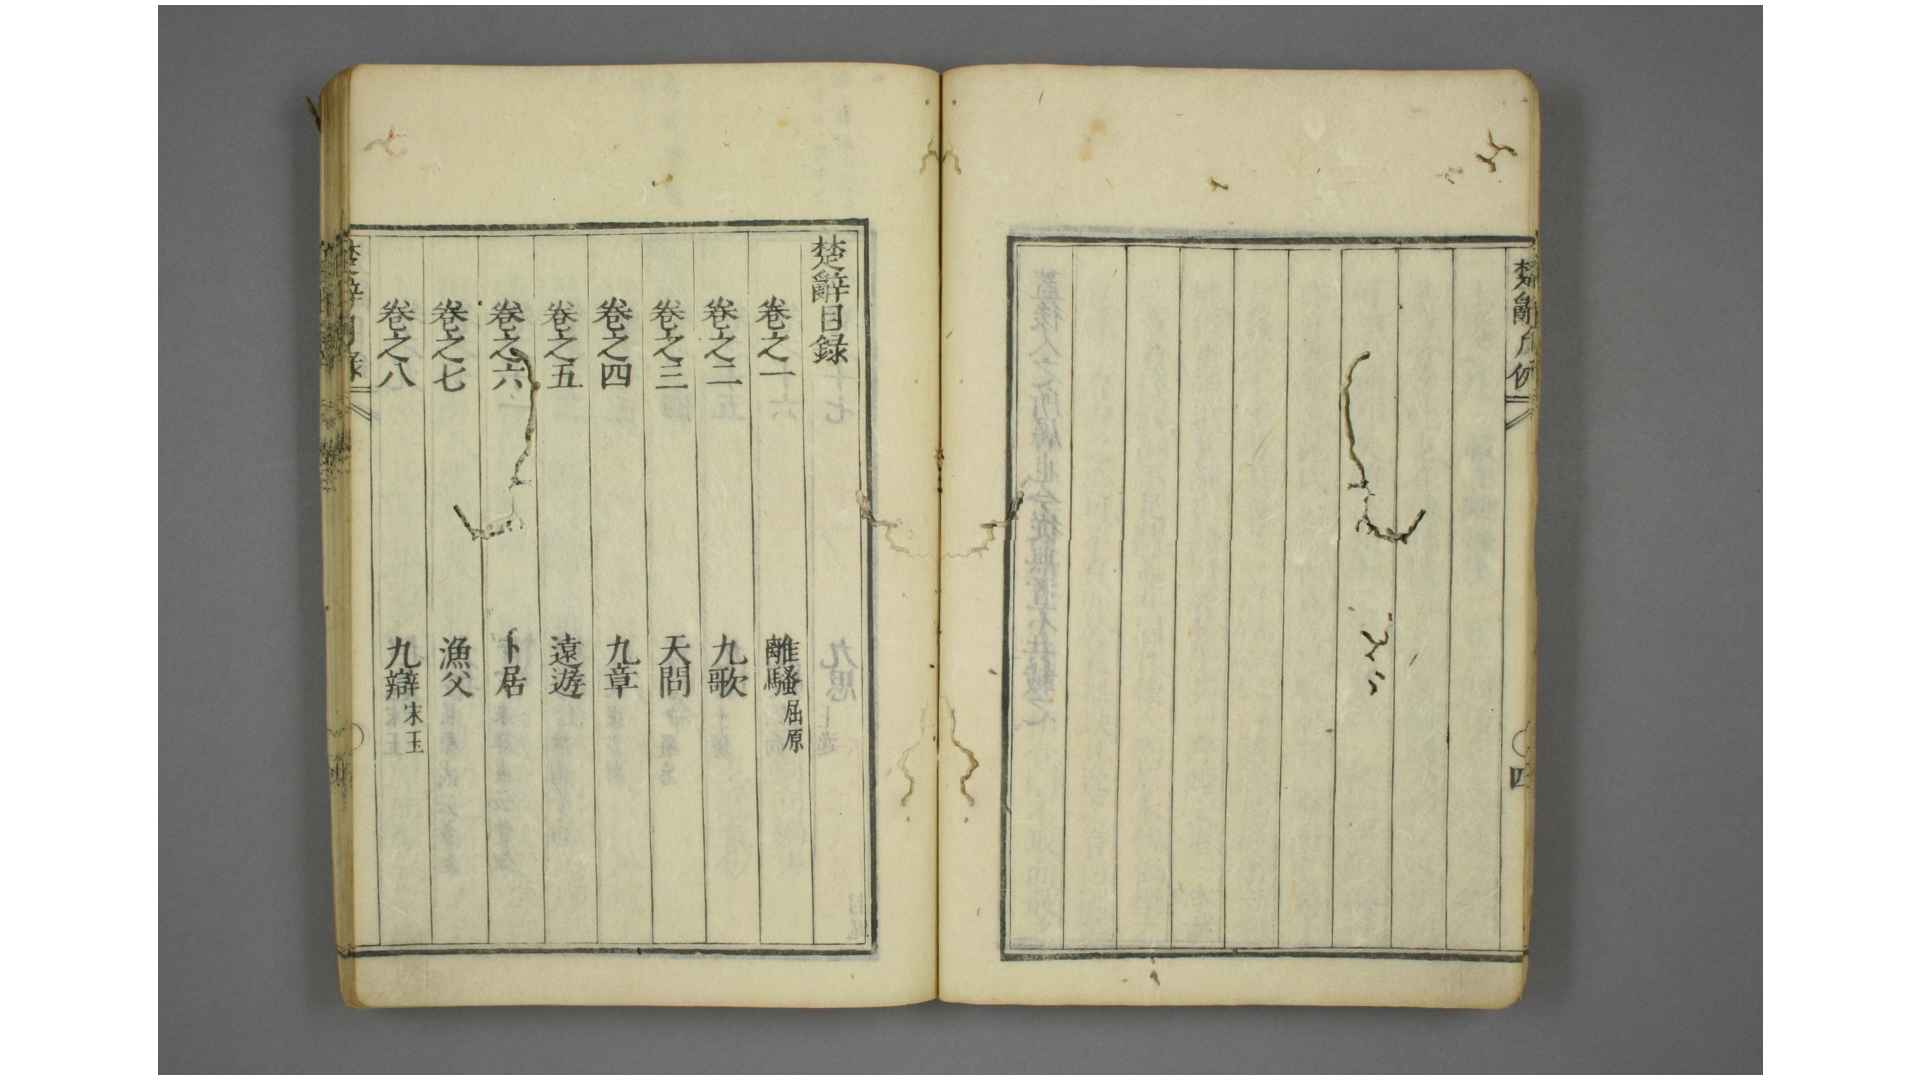 楚辭凡例
四
楚辭目録
卷之一 離騷屈原
卷之二 九歌
卷之三 天問
卷之四 九章
卷之五 遠遊
卷之六 卜居
卷之七 漁父
卷之八 九辯宋玉
楚辭目録